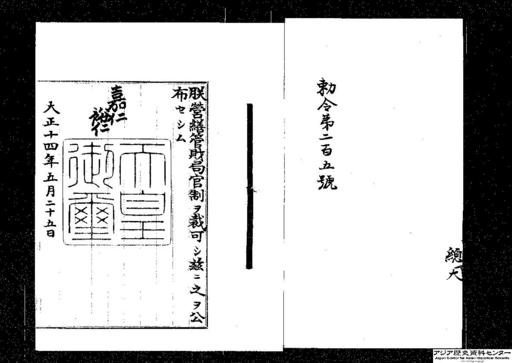 勅令第二百五號
總大
朕營繕管財局官制ヲ裁可シ茲ニ之ヲ公
布セシム
嘉仁
裕仁
天皇
御璽
大正十四年五月二十五日
アジア歴史資料センター
Japan Center for Asian Historical Records